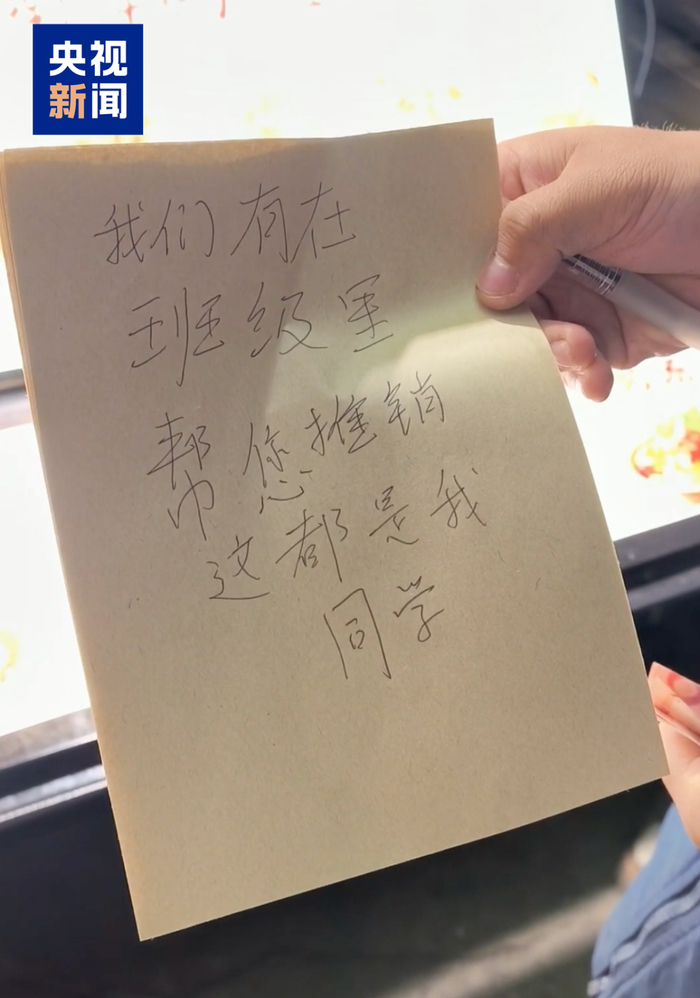 央视
新闻
我们有在
班级里
帮您推销
这都是我
同学